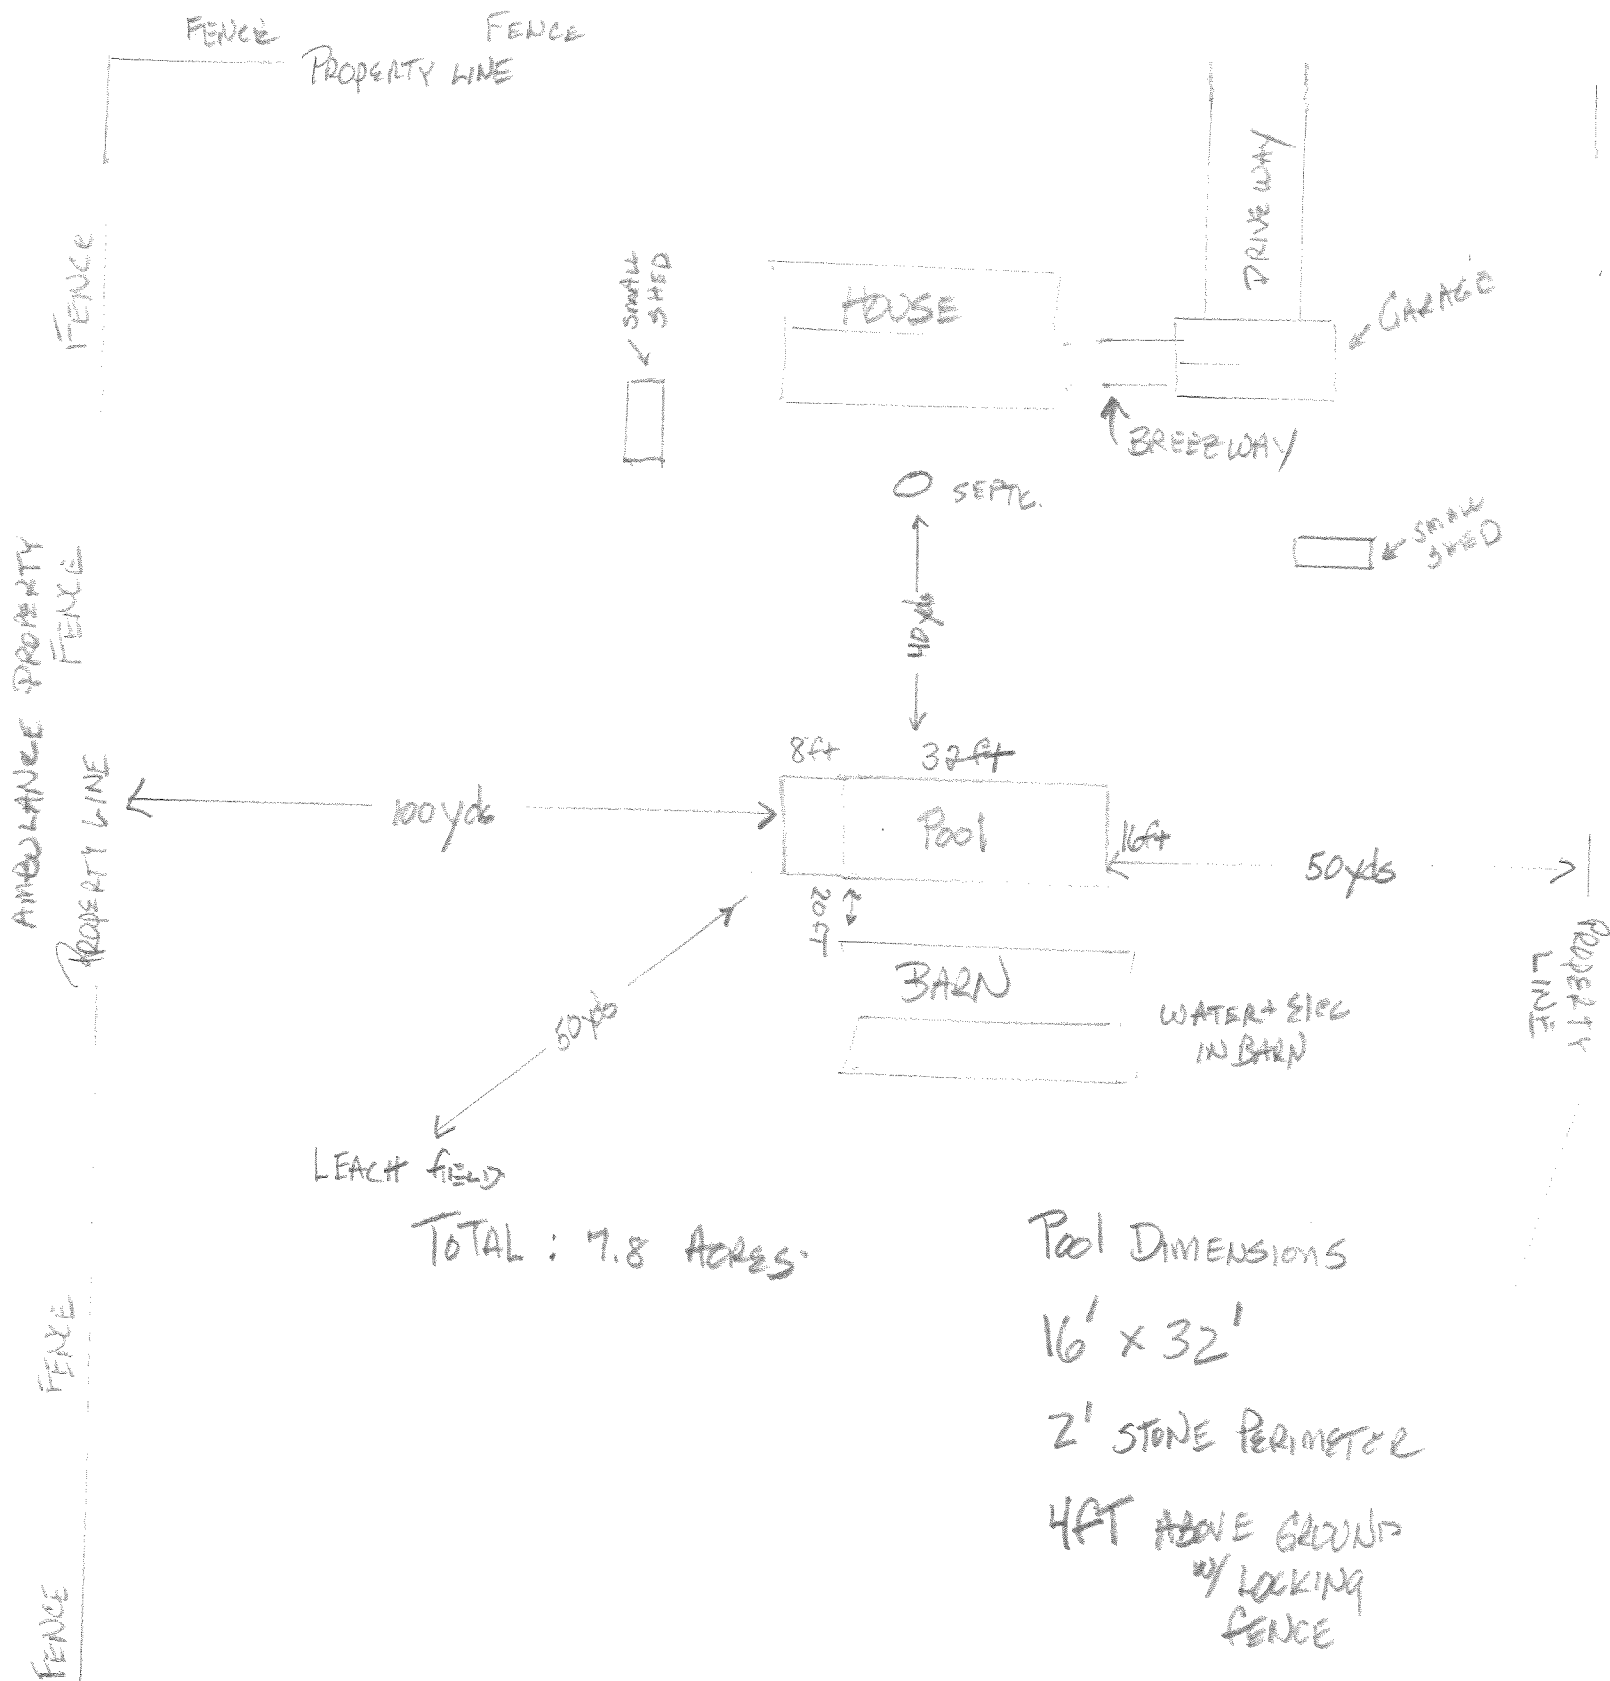 FENCE
FENCE
PROPERTY LINE
DRIVE WAY
FENCE
SMALL
SHED
HOUSE
GARAGE
BREEZWAY
SEPTIC.
SMALL
SHED
AMBULANCE PROPERTY
FENCE
40 yds
8ft
32 ft
PROPERTY LINE
100 yds
Pool
16ft
50 yds
20 ft
BARN
PROPERTY
LINE
WATER + Elec
IN BARN
50 yds
LEACH fiELD
TOTAL : 7.8 ACRES.
Pool DIMENSIONS
16' x 32'
2' STONE PERIMETER
4FT ABOVE GROUND
w/ LOCKING
fENCE
FENCE
FENCE